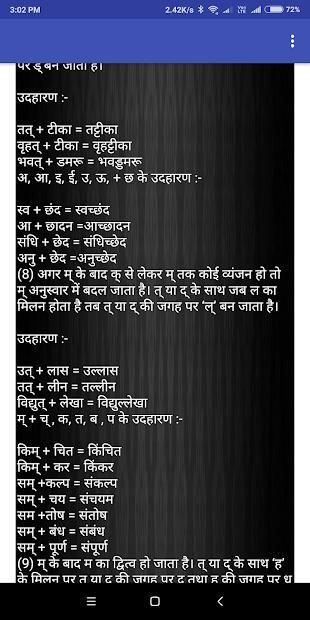 3:02 PM 2.42K/s 72%
पर ड् बन जाता है।
उदहारण :-
तत् + टीका = तट्टीका
वृहत् + टीका = वृहट्टीका
भवत् + डमरू = भवड्डमरू
अ, आ, इ, ई, उ, ऊ, + छ के उदहारण :-
स्व + छंद = स्वच्छंद
आ + छादन =आच्छादन
संधि + छेद = संधिच्छेद
अनु + छेद =अनुच्छेद
(8) अगर म् के बाद क् से लेकर म् तक कोई व्यंजन हो तो
म् अनुस्वार में बदल जाता है। त् या द् के साथ जब ल का
मिलन होता है तब त् या द् की जगह पर ‘ल्’ बन जाता है।
उदहारण :-
उत् + लास = उल्लास
तत् + लीन = तल्लीन
विद्युत् + लेखा = विद्युल्लेखा
म् + च् , क, त, ब , प के उदहारण :-
किम् + चित = किंचित
किम् + कर = किंकर
सम् +कल्प = संकल्प
सम् + चय = संचयम
सम +तोष = संतोष
सम् + बंध = संबंध
सम् + पूर्ण = संपूर्ण
(9) म् के बाद म का द्वित्व हो जाता है। त् या द् के साथ ‘ह’
के मिलन पर त् या द् की जगह पर द् तथा ह की जगह पर ध